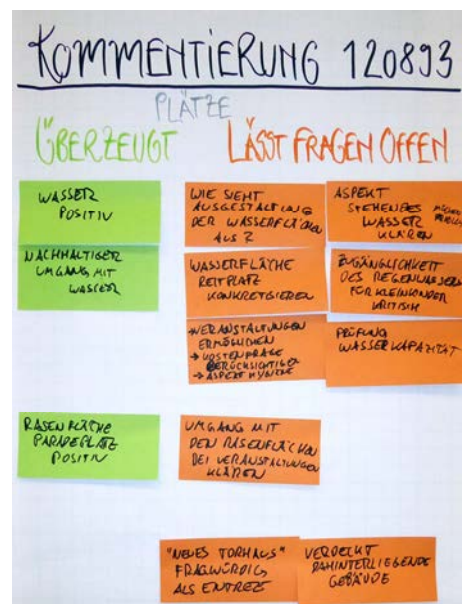 KOMMENTIERUNG 120893
PLÄTZE
ÜBERZEUGT
LÄSST FRAGEN OFFEN
WASSER
POSITIV
NACHHALTIGER
UMGANG MIT
WASSER
RASENFLÄCHE
PARADEPLATZ
POSITIV
WIE SIEHT
AUSGESTALTUNG
DER WASSERFLÄCHEN
AUS?
WASSERFLÄCHE
REITPLATZ
KONKRETISIEREN
→ VERANSTALTUNGEN
ERMÖGLICHEN
→ KOSTENFRAGE
BERÜCKSICHTIGEN
→ ASPEKT HYGIENE
UMGANG MIT
DEN RASENFLÄCHEN
BEI VERANSTALTUNGEN
KLÄREN
"NEUES TORHAUS"
FRAGWÜRDIG
ALS ENTREE
ASPEKT
STEHENDES
WASSER
KLÄREN
ZUGÄNGLICHKEIT
DES REGENWASSERS
FÜR KLEINKINDER
KRITISCH
PRÜFUNG
WASSERKAPAZITÄT
VERDECKT
DAHINTERLIEGENDE
GEBÄUDE